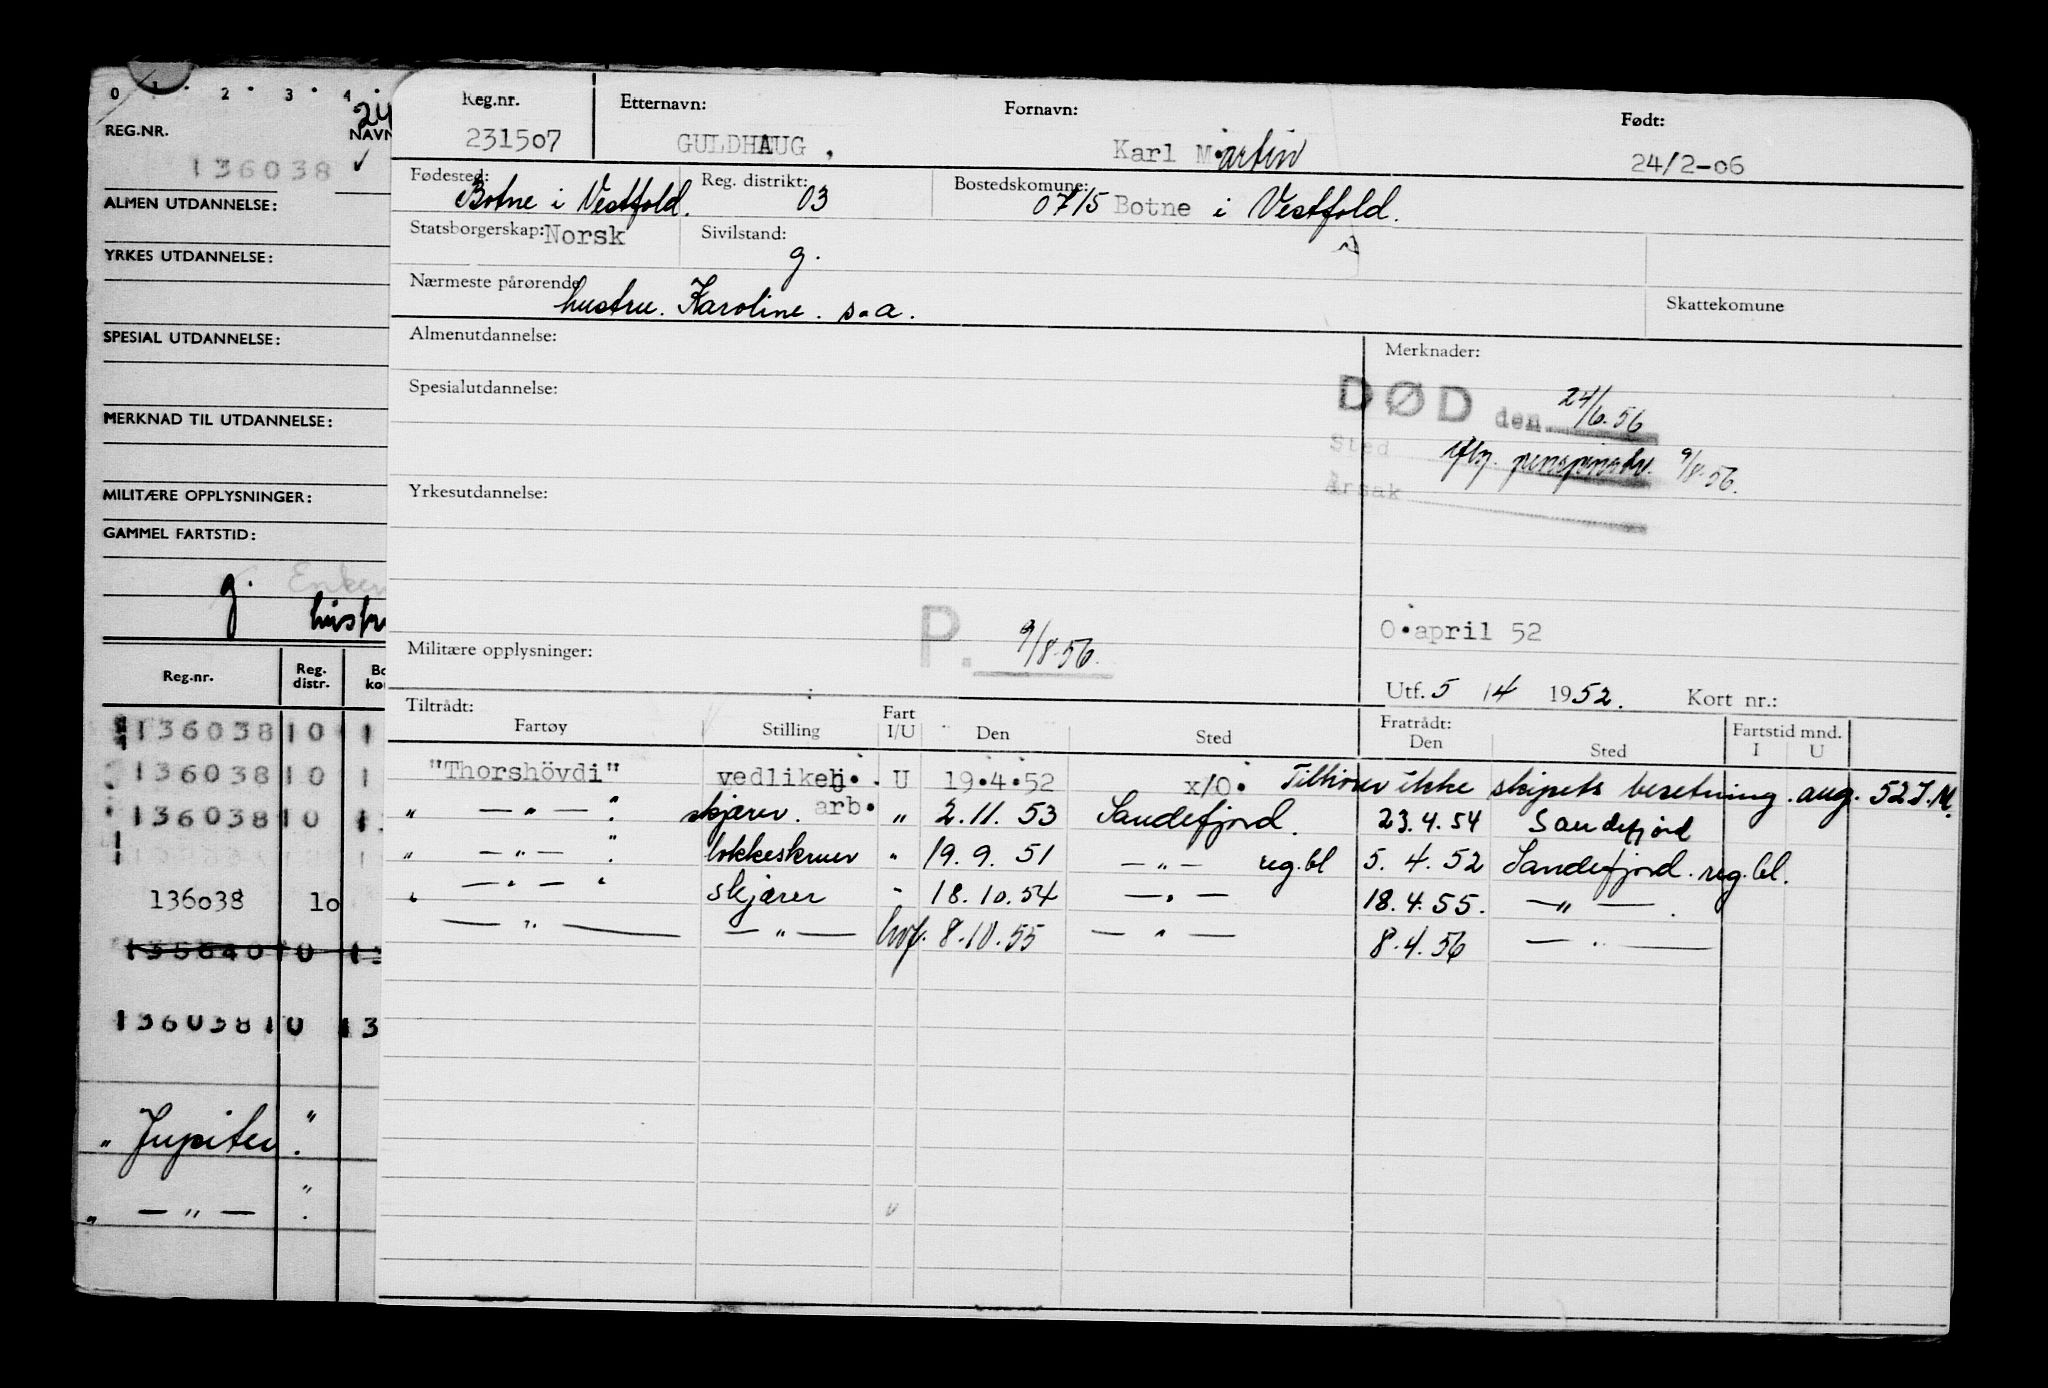 0 1 2 3 4
24
REG.NR.
NAVN
136038 ✓
ALMEN UTDANNELSE:
YRKES UTDANNELSE:
SPESIAL UTDANNELSE:
MERKNAD TIL UTDANNELSE:
MILITÆRE OPPLYSNINGER:
GAMMEL FARTSTID:
g.
Reg.nr. Reg. distr.
136038 10 1
136038 10 1
136038 10
136038 10
136038 10 13
" Jupiter "
" — " — "
Reg.nr. Etternavn: Fornavn: Født:
231507 GULDHAUG, Karl Martin 24/2-06
Fødested: Reg. distrikt: Bostedskomune:
Botne i Vestfold. 03 0715 Botne i Vestfold.
Statsborgerskap: Norsk Sivilstand: g.
Nærmeste pårørende Skattekomune
hustru. Karoline. s.a.
Almenutdannelse: Merknader:
Spesialutdannelse:
DØD den 24/6.56
Sted
iflg. pensjonstr. 9/8.56.
Årsak
Yrkesutdannelse:
P. 9/8.56.
O.april 52
Militære opplysninger:
Utf. 5 / 4 1952. Kort nr.:
Tiltrådt: Fratrådt:
Fartøy Stilling Fart I/U Den Sted Den Sted Fartstid mnd. I U
"Thorshövdi" vedlikeh. arb. U 19.4.52 x/O. Tilhører ikke skipets besetning. aug. 52 J.M.
" — " — " skjærer. " 2.11.53 Sandefjord. 23.4.54 Sandefjord
" — " — " lokkeskruer " 19.9.51 — " — reg.bl 5.4.52 Sandefjord. reg.bl.
" — " — " skjærer " 18.10.54 — " — 18.4.55. — " — .
— " — — " — hvf. 8.10.55 — " — 8.4.56 — " —